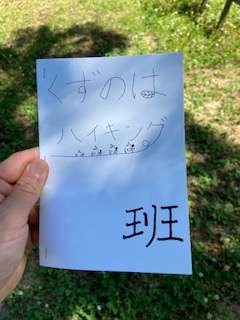 くずのは
ハイキング
班